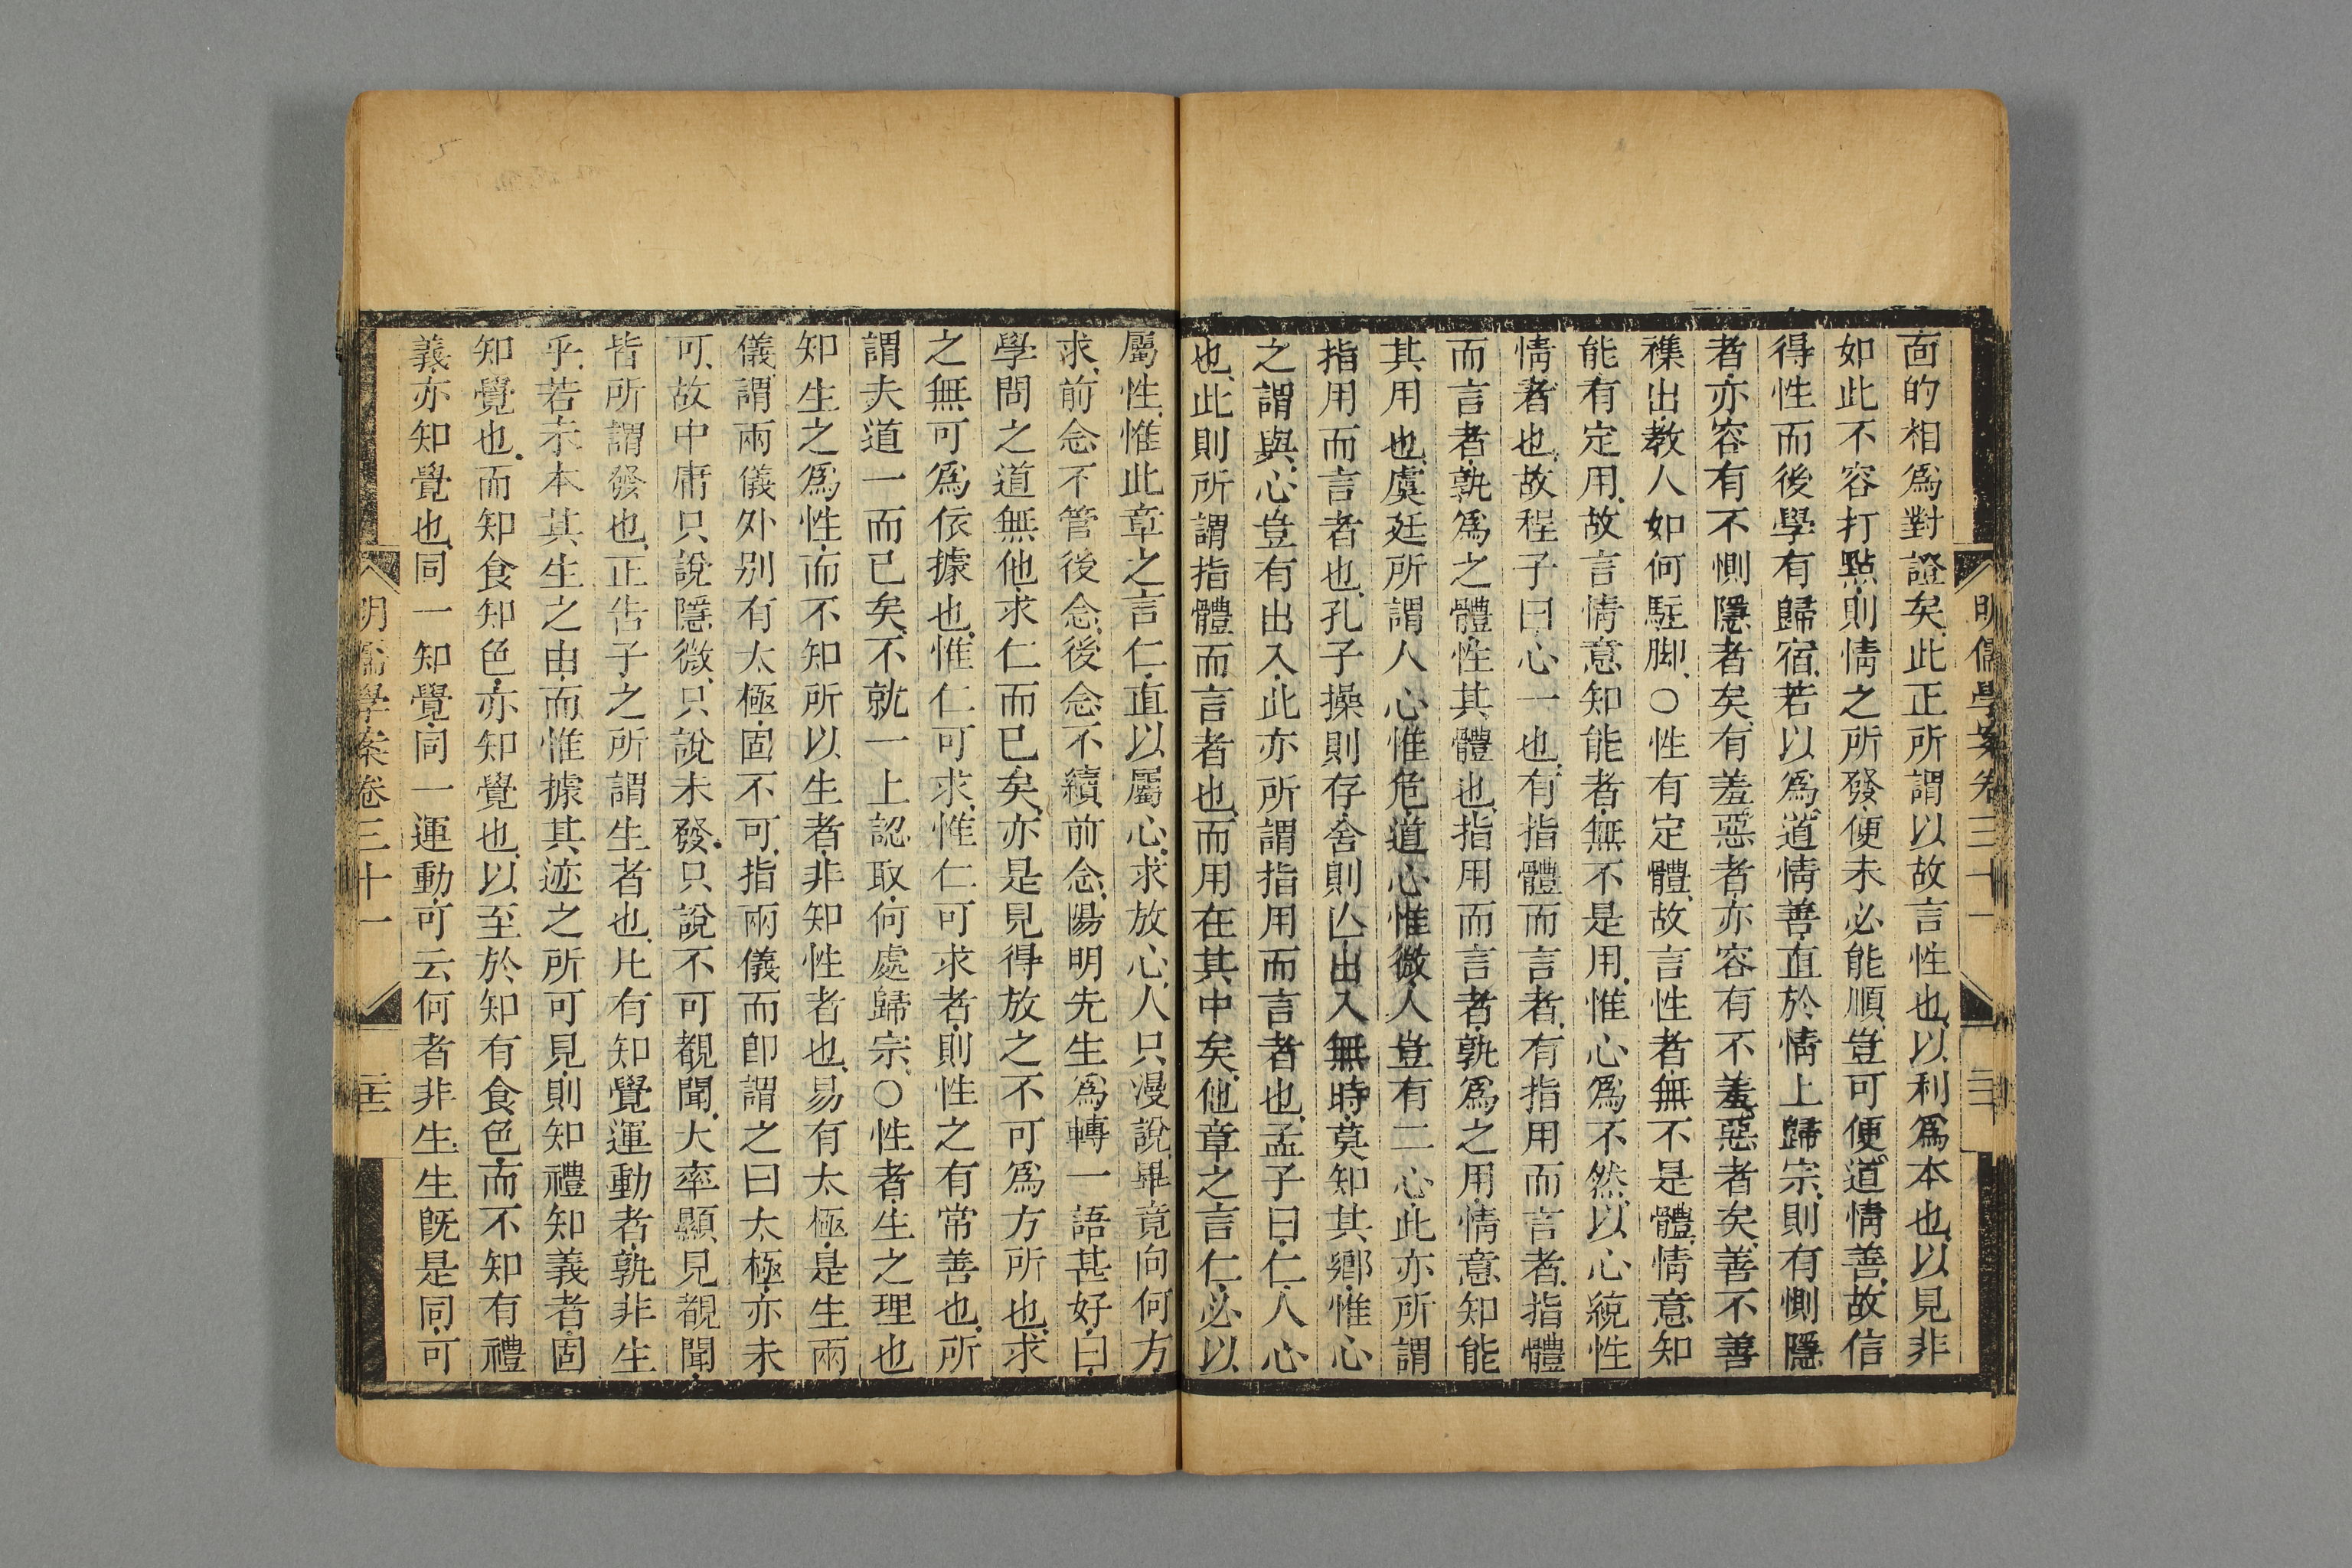 明儒學案卷三十一
面的相爲對證矣、此正所謂以故言性也、以利爲本也、以見非
如此不容打點、則情之所發、便未必能順、豈可便道情善、故信
得性而後學有歸宿、若以爲道情善、直於情上歸宗、則有惻隱
者、亦容有不惻隱者矣、有羞惡者、亦容有不羞惡者矣、善不善
襍出、教人如何駐脚、○性有定體、故言性者、無不是體、情意知
能有定用、故言情意知能者、無不是用、惟心爲不然、以心統性
情者也、故程子曰心一也、有指體而言者、有指用而言者、指體
而言者、孰爲之體、性其體也、指用而言者、孰爲之用、情意知能
其用也、虞廷所謂人心惟危、道心惟微、人豈有二心、此亦所謂
指用而言者也、孔子操則存、舍則亾、出入無時、莫知其鄉、惟心
之謂與、心豈有出入、此亦所謂指用而言者也、孟子曰、仁人心
也、此則所謂指體而言者也、而用在其中矣、他章之言仁、必以
屬性、惟此章之言仁、直以屬心、求放心、人只漫說、畢竟向何方
求、前念不管後念、後念不續前念、陽明先生爲轉一語甚好、曰、
學問之道無他、求仁而已矣、亦是見得放之不可爲方所也、求
之無可爲依據也、惟仁可求、惟仁可求者、則性之有常善也、所
謂夫道一而已矣、不就一上認取、何處歸宗、○性者、生之理也
知生之爲性、而不知所以生者、非知性者也、易有太極、是生兩
儀、謂兩儀外别有太極、固不可、指兩儀而卽謂之曰太極、亦未
可、故中庸只說隱微、只說未發、只說不可覩聞、大率顯見覩聞、
皆所謂發也、正告子之所謂生者也、凡有知覺運動者、孰非生
乎、若未本其生之由、而惟據其迹之所可見、則知禮知義者、固
知覺也、而知食知色、亦知覺也、以至於知有食色、而不知有禮
義、亦知覺也、同一知覺、同一運動、可云何者非生、生旣是同、可
明儒學案卷三十一